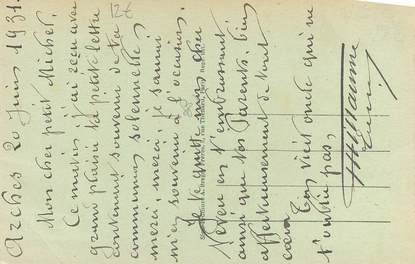 Arches 20 Juin 1931.
Mon cher petit Michel,
Ce matin j'ai reçu avec
grand plaisir ta petite lettre
contenant souvenir de ta
communion solennelle,
merci, merci, je saurai
m'en souvenir à l'occasion.
Je te quitte mon cher
Neveu en t'embrassant
ainsi que tes Parents, bien
affectueusement de tout
cœur
Ton vieil oncle qui ne
t'oublie pas,